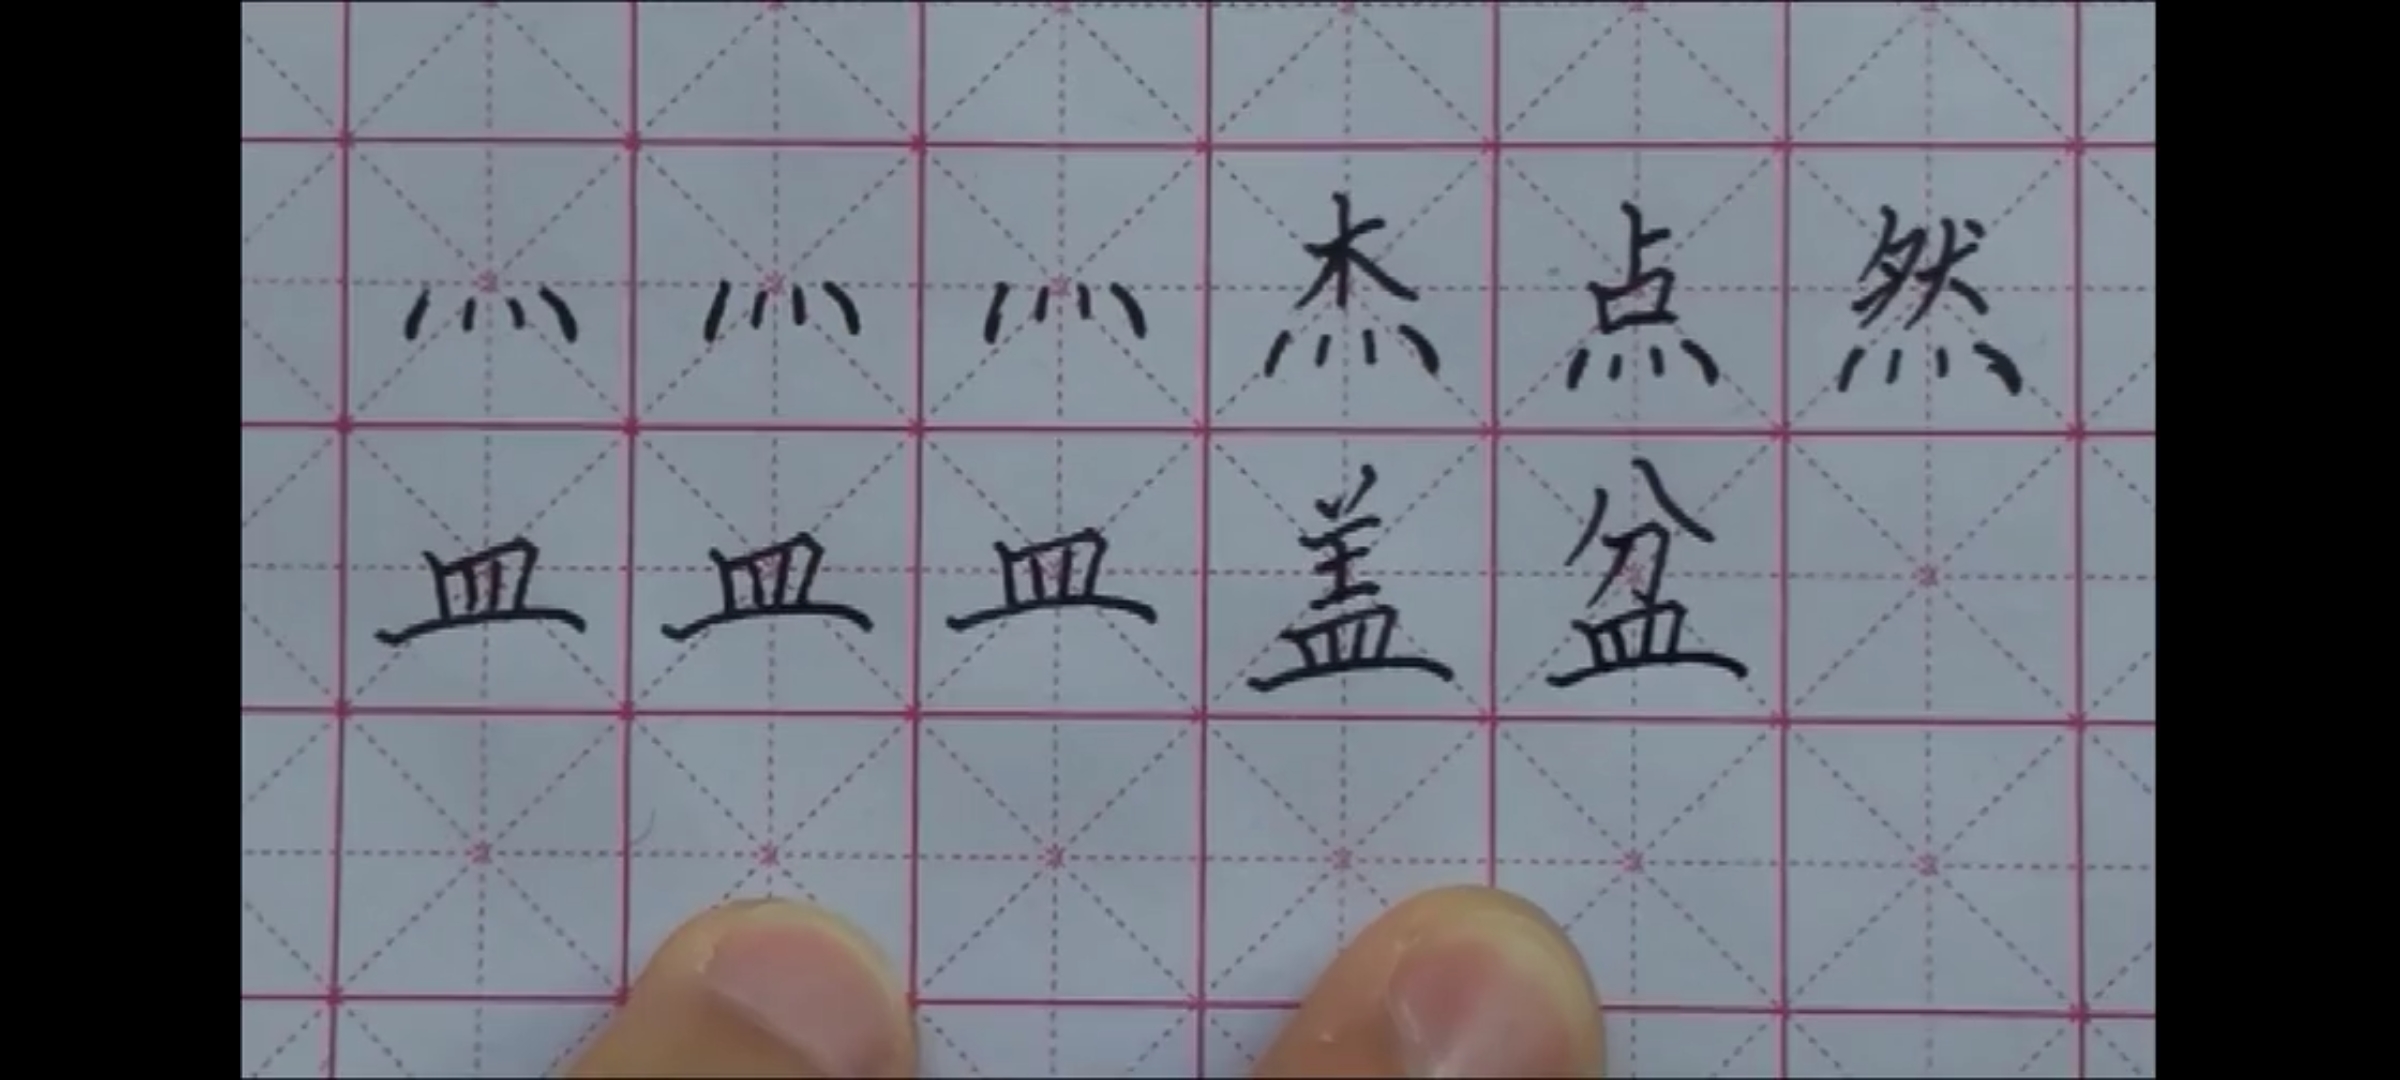 灬 灬 灬 杰 点 然
皿 皿 皿 盖 盆